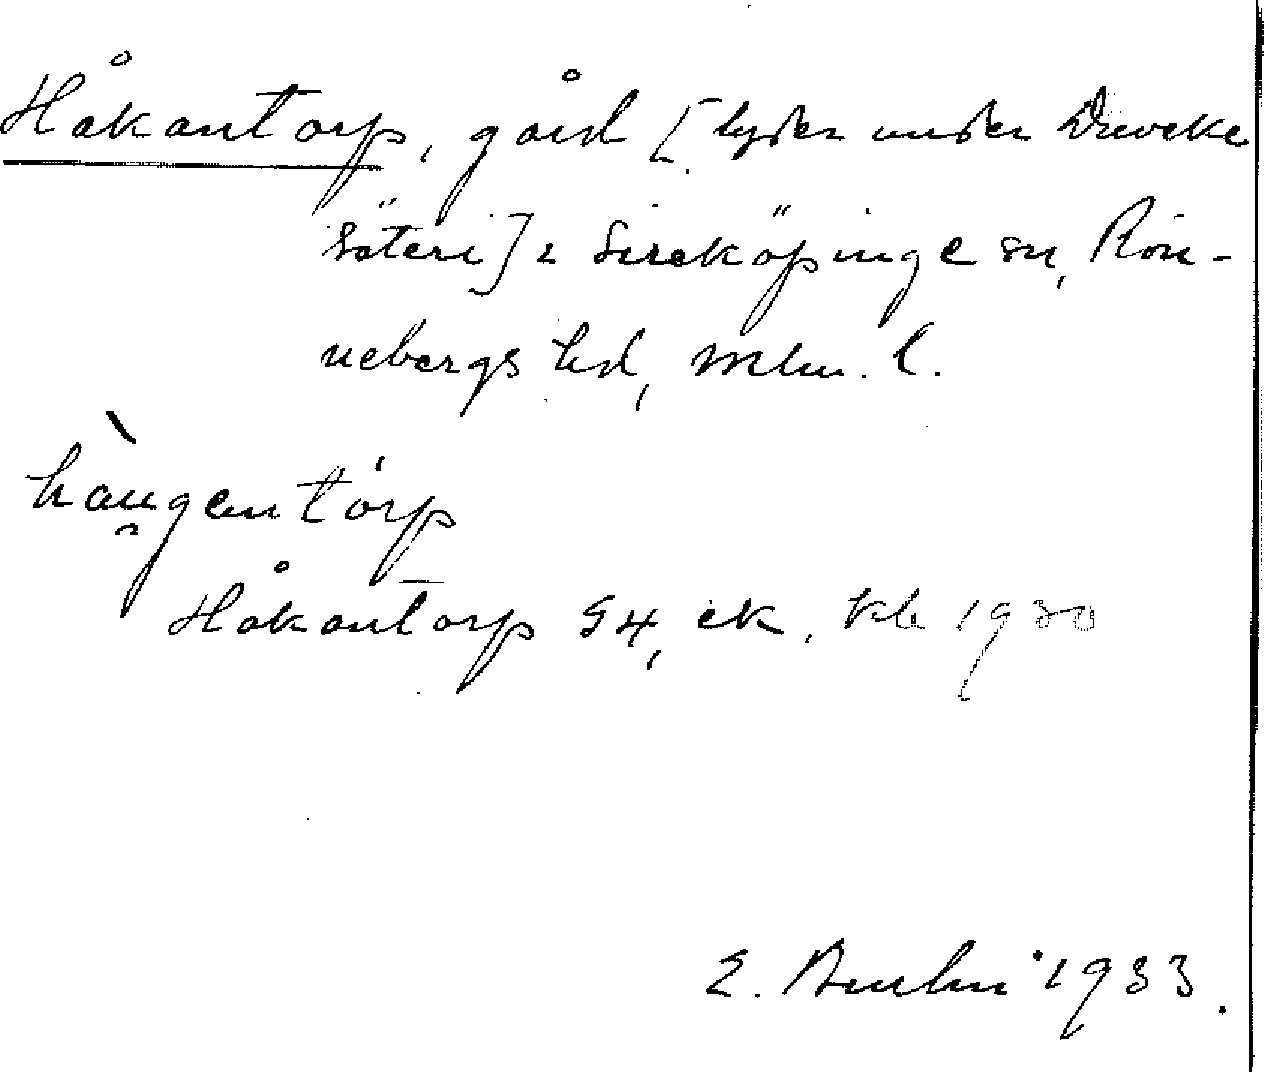 Håkantorp, gård [lyder under Duveke
säteri] i Sireköpinge sn, Rön-
nebergs hd, Mlm. l.
hàu̯gentórp
Håkantorp G4, ek, kb 1930
1933.